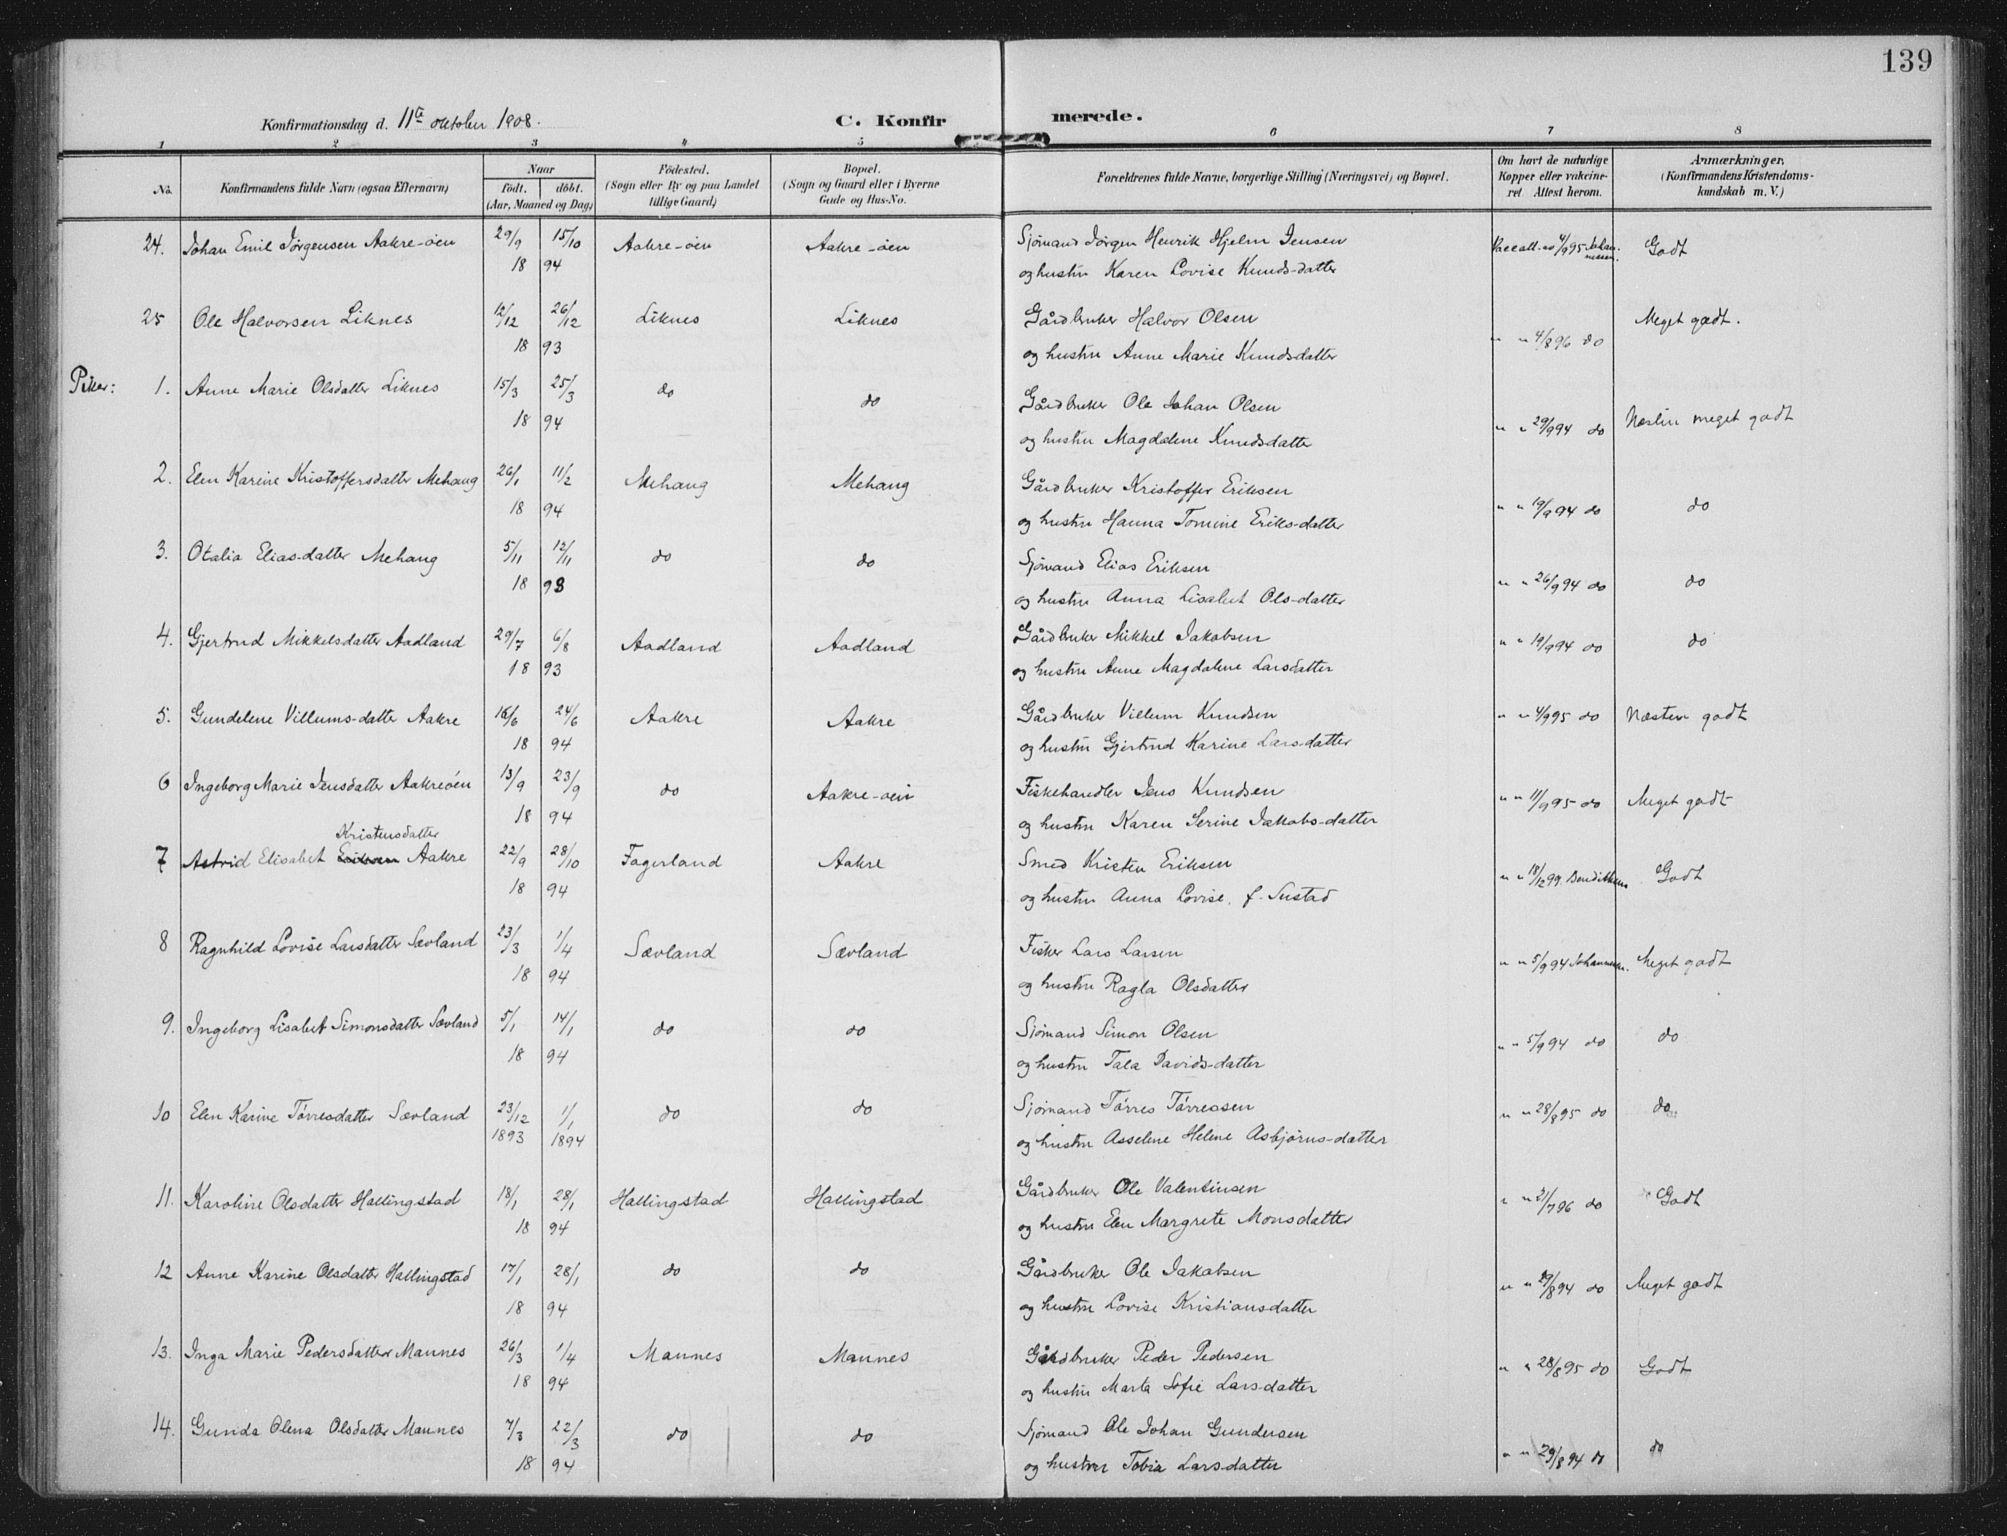 139
Konfirmationsdag d. 11te oktober 1908.
C. Konfirmerede.
1 2 3 4 5 6 7 8
No.
Konfirmandens fulde Navn (ogsaa Efternavn)
Naar
födt. döbt.
(Aar, Maaned og Dag)
Födested.
(Sogn eller By og paa Landet
tillige Gaard)
Bopæl.
(Sogn og Gaard eller i Byerne
Gade og Hus-No.
Forældrenes fulde Navne, borgerlige Stilling (Næringsvei) og Bopæl.
Om havt de naturlige
Kopper eller vakcine-
ret. Attest herom.
Anmærkninger,
(Konfirmandens Kristendoms-
kundskab m. V.)
24. Johan Emil Jørgensen Aakre-øen 29/9 15/10 Aakre-øen Aakre-øen Sjømand Jørgen Henrik Hjelm Jensen Godt
18 94 og hustru Karen Lovise Knuds-datter
25 Ole Halvorsen Liknes 12/12 26/12 Liknes Liknes Gårdbruker Halvor Olsen Meget godt.
18 93 og hustru Anne Marie Knudsdatter " " 4/8 96 do
Piker: 1. Anne Marie Olsdatter Liknes 15/3 25/3 do do Gårdbruker Ole Johan Olsen
18 94 og hustru Magdalene Knudsdatter " " 29/9 94 do Næsten meget godt
2. Elen Karine Kristoffersdatter Mehaug 26/1 11/2 Mehaug Mehaug Gårdbruker Kristoffer Eriksen
18 94 og hustru Hanna Tomine Eriks-datter " " 19/9 94 do do
3. Otalia Elias-datter Mehaug 5/11 12/11 do do Sjømand Elias Eriksen
18 93 og hustru Anna Lisabet Ols-datter " " 26/9 94 do do
4. Gjertrud Mikkelsdatter Aadland 29/7 6/8 Aadland Aadland Gårdbruker Mikkel Jakobsen " " 19/9 94 do do
18 93 og hustru Anne Magdalene Larsdatter
5. Gundelene Villums-datter Aakre 16/6 24/6 Aakre Aakre Gårdbruker Villum Knudsen " " 4/9 95 do Næsten godt
18 94 og hustru Gjertrud Karine Lars-datter
6 Ingeborg Marie Jensdatter Aakreøen 13/9 23/9 do Aakre-øen Fiskehandler Jens Knudsen " " 11/9 95 do Meget godt
18 94 og hustru Karen Serine Jakobs-datter
Kristensdatter
7 Astrid Elisabet Eriksen Aakre 22/9 28/10 Fagerland Aakre Smed Kristen Eriksen " " 18/12 99. Godt
18 94 og hustru Anna Lovise, f. Sustad
8 Ragnhild Lovise Larsdatter Sævland 23/3 1/4 Sævland Sævland Fisker Lars Larsen " " 5/9 94 Johannessen. Meget godt
18 94 og hustru Ragla Olsdatter
9. Ingeborg Lisabet Simonsdatter Sævland 5/1 14/1 do do Sjømand Simon Olsen " " 5/9 94 do do
18 94 og hustru Tala Davids-datter
10 Elen Karine Tørresdatter Sævland 23/12 1/1 do do Sjømand Tørres Tørressen " " 28/8 95 do do
1893 1894 og hustru Asselene Helene Asbjørns-datter
11. Karoline Olsdatter Hallingstad 18/1 28/1 Hallingstad Hallingstad Gårdbruker Ole Valentinsen " " 21/7 96 do Godt
18 94 og hustru Elen Margrete Monsdatter
12 Anne Karine Olsdatter Hallingstad 17/1 28/1 do do Gårdbruker Ole Jakobsen " " 29/8 94 do Meget godt
18 94 og hustru Lovise Kristiansdatter
13. Inga Marie Pedersdatter Mannes 26/3 1/4 Mannes Mannes Gårdbruker Peder Pedersen " " 28/8 95 do Godt
18 94 og hustru Marta Sofie Larsdatter
14. Gunda Olena Olsdatter Mannes 7/3 22/3 do do Sjømand Ole Johan Gundersen
18 94 og hustru Tobia Larsdatter " " 29/8 94 do do